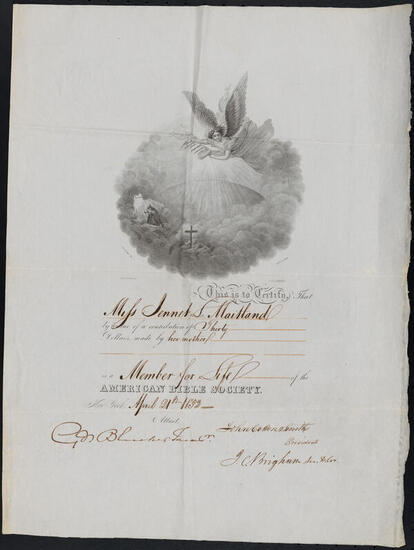 This is to Certify, That
Miss Jennet L. Maitland
by virtue of a contribution of Thirty
Dollars, made by her mother
is a Member for Life of the
AMERICAN BIBLE SOCIETY.
New York April 21st 1832
Attest
John Cotton Smith
President
J. C. Brigham Sec.